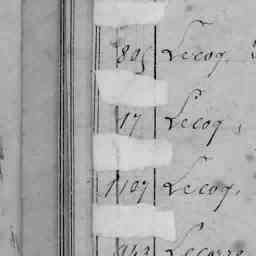 805 Lecoq,
17 Lecoq,
1107 Lecoq,